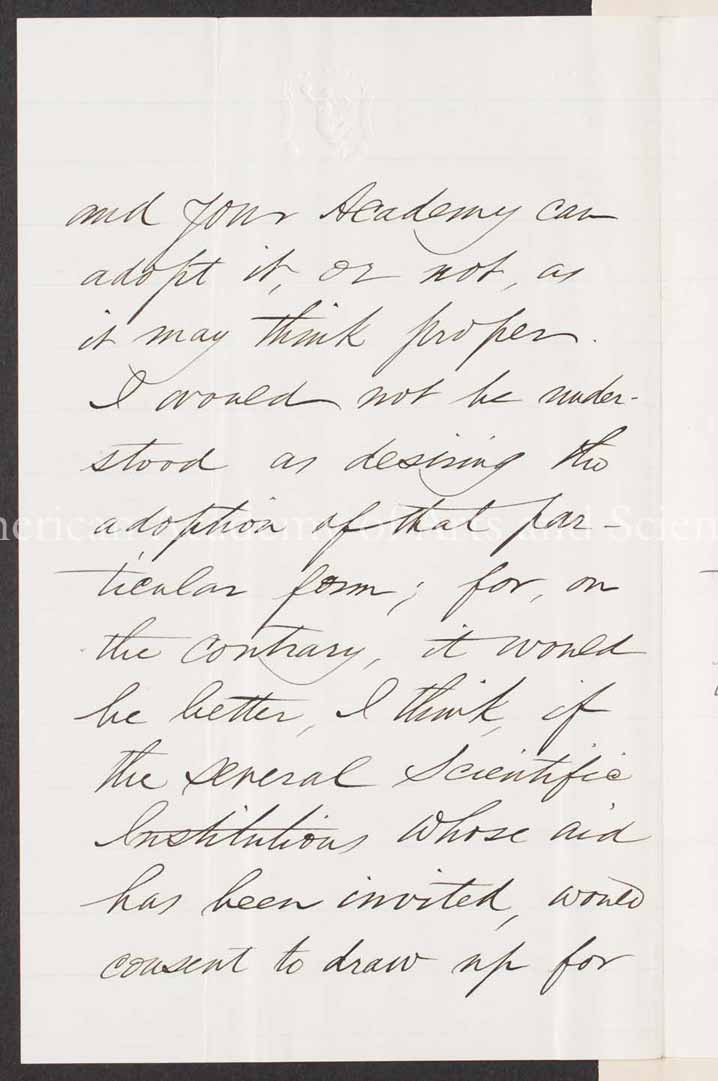 and your Academy can
adopt it, or not, as
it may think proper.
I would not be under-
stood as desiring the
adoption of that par-
ticular form; for, on
the contrary, it would
be better, I think, if
the several Scientific
Institutions whose aid
has been invited, would
consent to draw up for
merican Academy of Arts and Scien